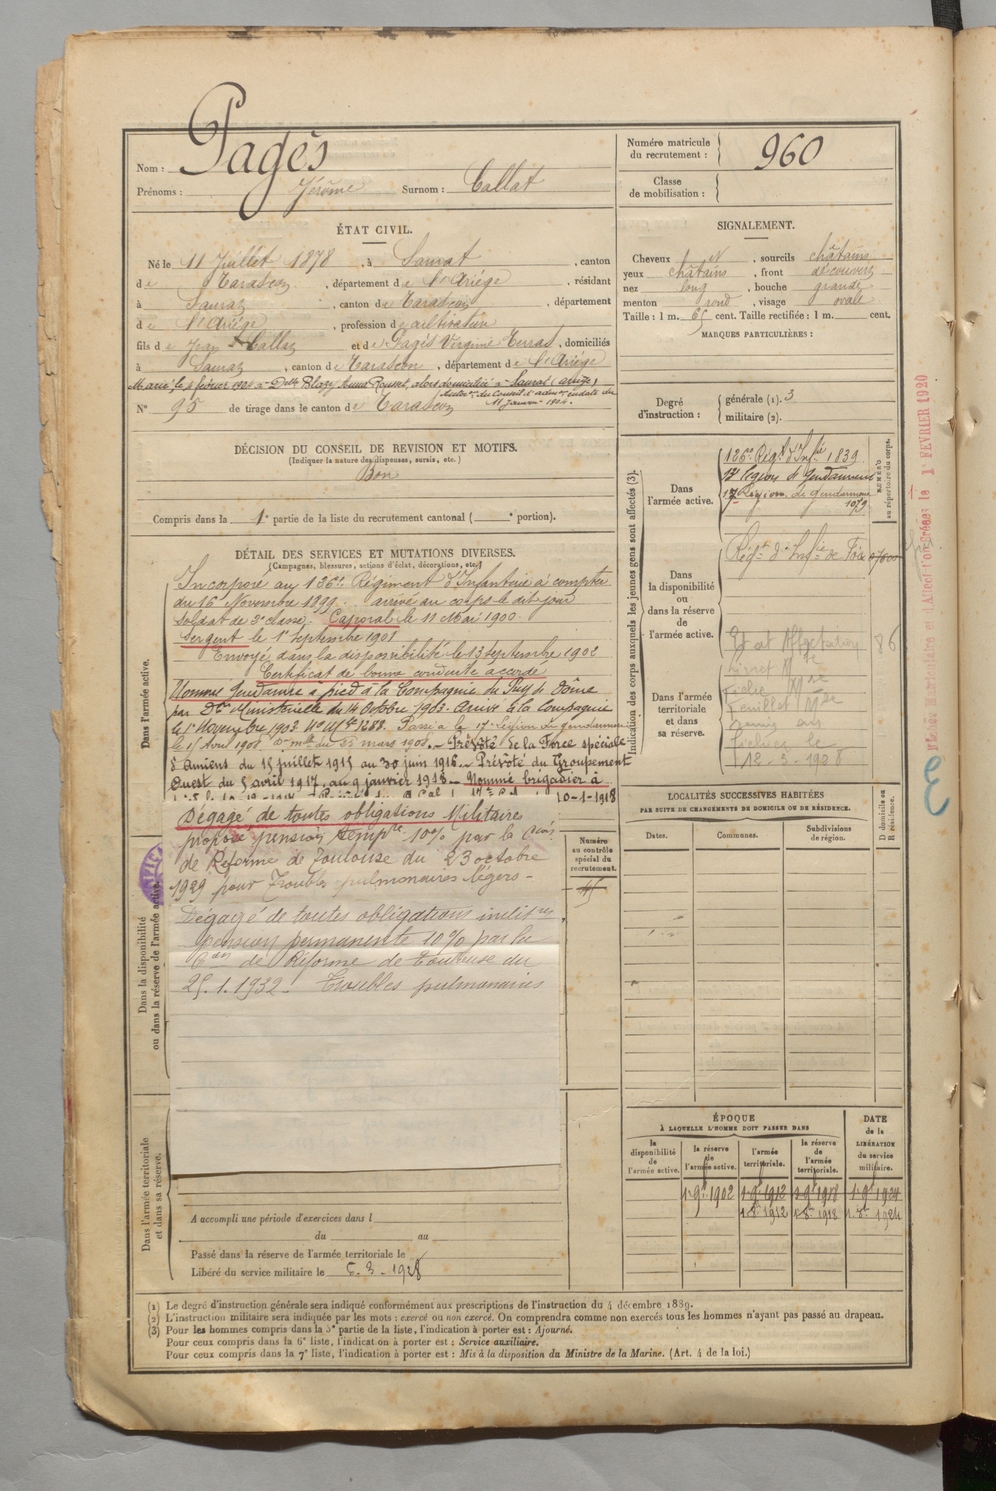 Nom : Pagès
Prénoms : Jérôme Surnom : Callat
Numéro matricule du recrutement : 960
Classe de mobilisation :
ÉTAT CIVIL.
Né le 11 Juillet 1878, à Saurat, canton
de Tarascon, département de l'Ariège, résidant
à Saurat, canton de Tarascon, département
de l'Ariège, profession de cultivateur
fils de Jean Callat et de Pagès Virginie Terras, domiciliés
à Saurat, canton de Tarascon, département de l'Ariège
Marié, le 8 février 1904 à Delle Blazy Anne Rousse, alors domiciliée à Saurat (Ariège)
11 Janvier 1904.
N° 95 de tirage dans le canton de Tarascon
SIGNALEMENT.
Cheveux et, sourcils châtains
yeux châtains, front découvert
nez long, bouche grande
menton rond, visage ovale
Taille : 1 m. 65 cent. Taille rectifiée : 1 m. cent.
MARQUES PARTICULIÈRES :
Degré d'instruction : générale (1). 3
militaire (2).
DÉCISION DU CONSEIL DE REVISION ET MOTIFS.
(Indiquer la nature des dispenses, sursis, etc.)
Bon
Compris dans la 1e partie de la liste du recrutement cantonal ( e portion).
DÉTAIL DES SERVICES ET MUTATIONS DIVERSES.
(Campagnes, blessures, actions d'éclat, décorations, etc.)
Dans l'armée active.
Incorporé au 126e Régiment d'Infanterie à compter
du 16 Novembre 1899. arrivé au corps le dit jour
Soldat de 2e classe. Caporal le 11 Mai 1900.
Sergent le 1er Septembre 1901
Envoyé dans la disponibilité le 13 septembre 1902
Certificat de bonne conduite accordé
Nommé gendarme à pied à la Compagnie du Puy de Dôme
par Don Ministérielle du 14 Octobre 1903. Arrivé à la Compagnie
le 1er Novembre 1903 No Mle 1288. Passé à la 17e Légion de gendarmerie
le 1er Avril 1908. mars 1908. – Prévôté de la Force spéciale
d'Amiens du 15 juillet 1915 au 30 juin 1916 – Prévôté du Groupement
Ouest du 5 avril 1917, au 9 janvier 1918 – Nommé brigadier à
10-1-1918
Dégagé de toutes obligations Militaires
proposé pension tempre 10% par la Con
de Réforme de Toulouse du 23 octobre
1929 pour Troubles pulmonaires légers –
Dans la disponibilité ou dans la réserve de l'armée active.
Dégagé de toutes obligations militres
pension permanente 10% par la
Con de Réforme de Toulouse du
25.1.1932. Troubles pulmonaires
Dans l'armée territoriale et dans sa réserve.
A accompli une période d'exercices dans l
du au
Passé dans la réserve de l'armée territoriale le
Libéré du service militaire le 5-3-1928
Numéro au contrôle spécial du recrutement.
Indication des corps auxquels les jeunes gens sont affectés (3).
Dans l'armée active.
126e Régt d'Infie 1839
17 Légion de gendarmerie
1079
NUMÉRO au répertoire du corps.
Dans la disponibilité ou dans la réserve de l'armée active.
Régt d'Infie de Foix
Dans l'armée territoriale et dans sa réserve.
Livret Mle
Fiche Mle
Feuillet Mle
12-3-1928
1er FÉVRIER 1920
LOCALITÉS SUCCESSIVES HABITÉES
PAR SUITE DE CHANGEMENTS DE DOMICILE OU DE RÉSIDENCE.
Dates. Communes. Subdivisions de région. D domicile ou R résidence.
ÉPOQUE
À LAQUELLE L'HOMME DOIT PASSER DANS
DATE de la LIBÉRATION du service militaire.
la disponibilité de l'armée active. la réserve de l'armée active. l'armée territoriale. la réserve de l'armée territoriale.
1-9bre 1902 1-9bre 1912 1-9bre 1918 1-9bre 1924
1-8bre 1912 1-8bre 1918 1-8bre 1924
(1) Le degré d'instruction générale sera indiqué conformément aux prescriptions de l'instruction du 4 décembre 1889.
(2) L'instruction militaire sera indiquée par les mots : exercé ou non exercé. On comprendra comme non exercés tous les hommes n'ayant pas passé au drapeau.
(3) Pour les hommes compris dans la 5e partie de la liste, l'indication à porter est : Ajourné.
Pour ceux compris dans la 6e liste, l'indication à porter est : Service auxiliaire.
Pour ceux compris dans la 7e liste, l'indication à porter est : Mis à la disposition du Ministre de la Marine. (Art. 4 de la loi.)